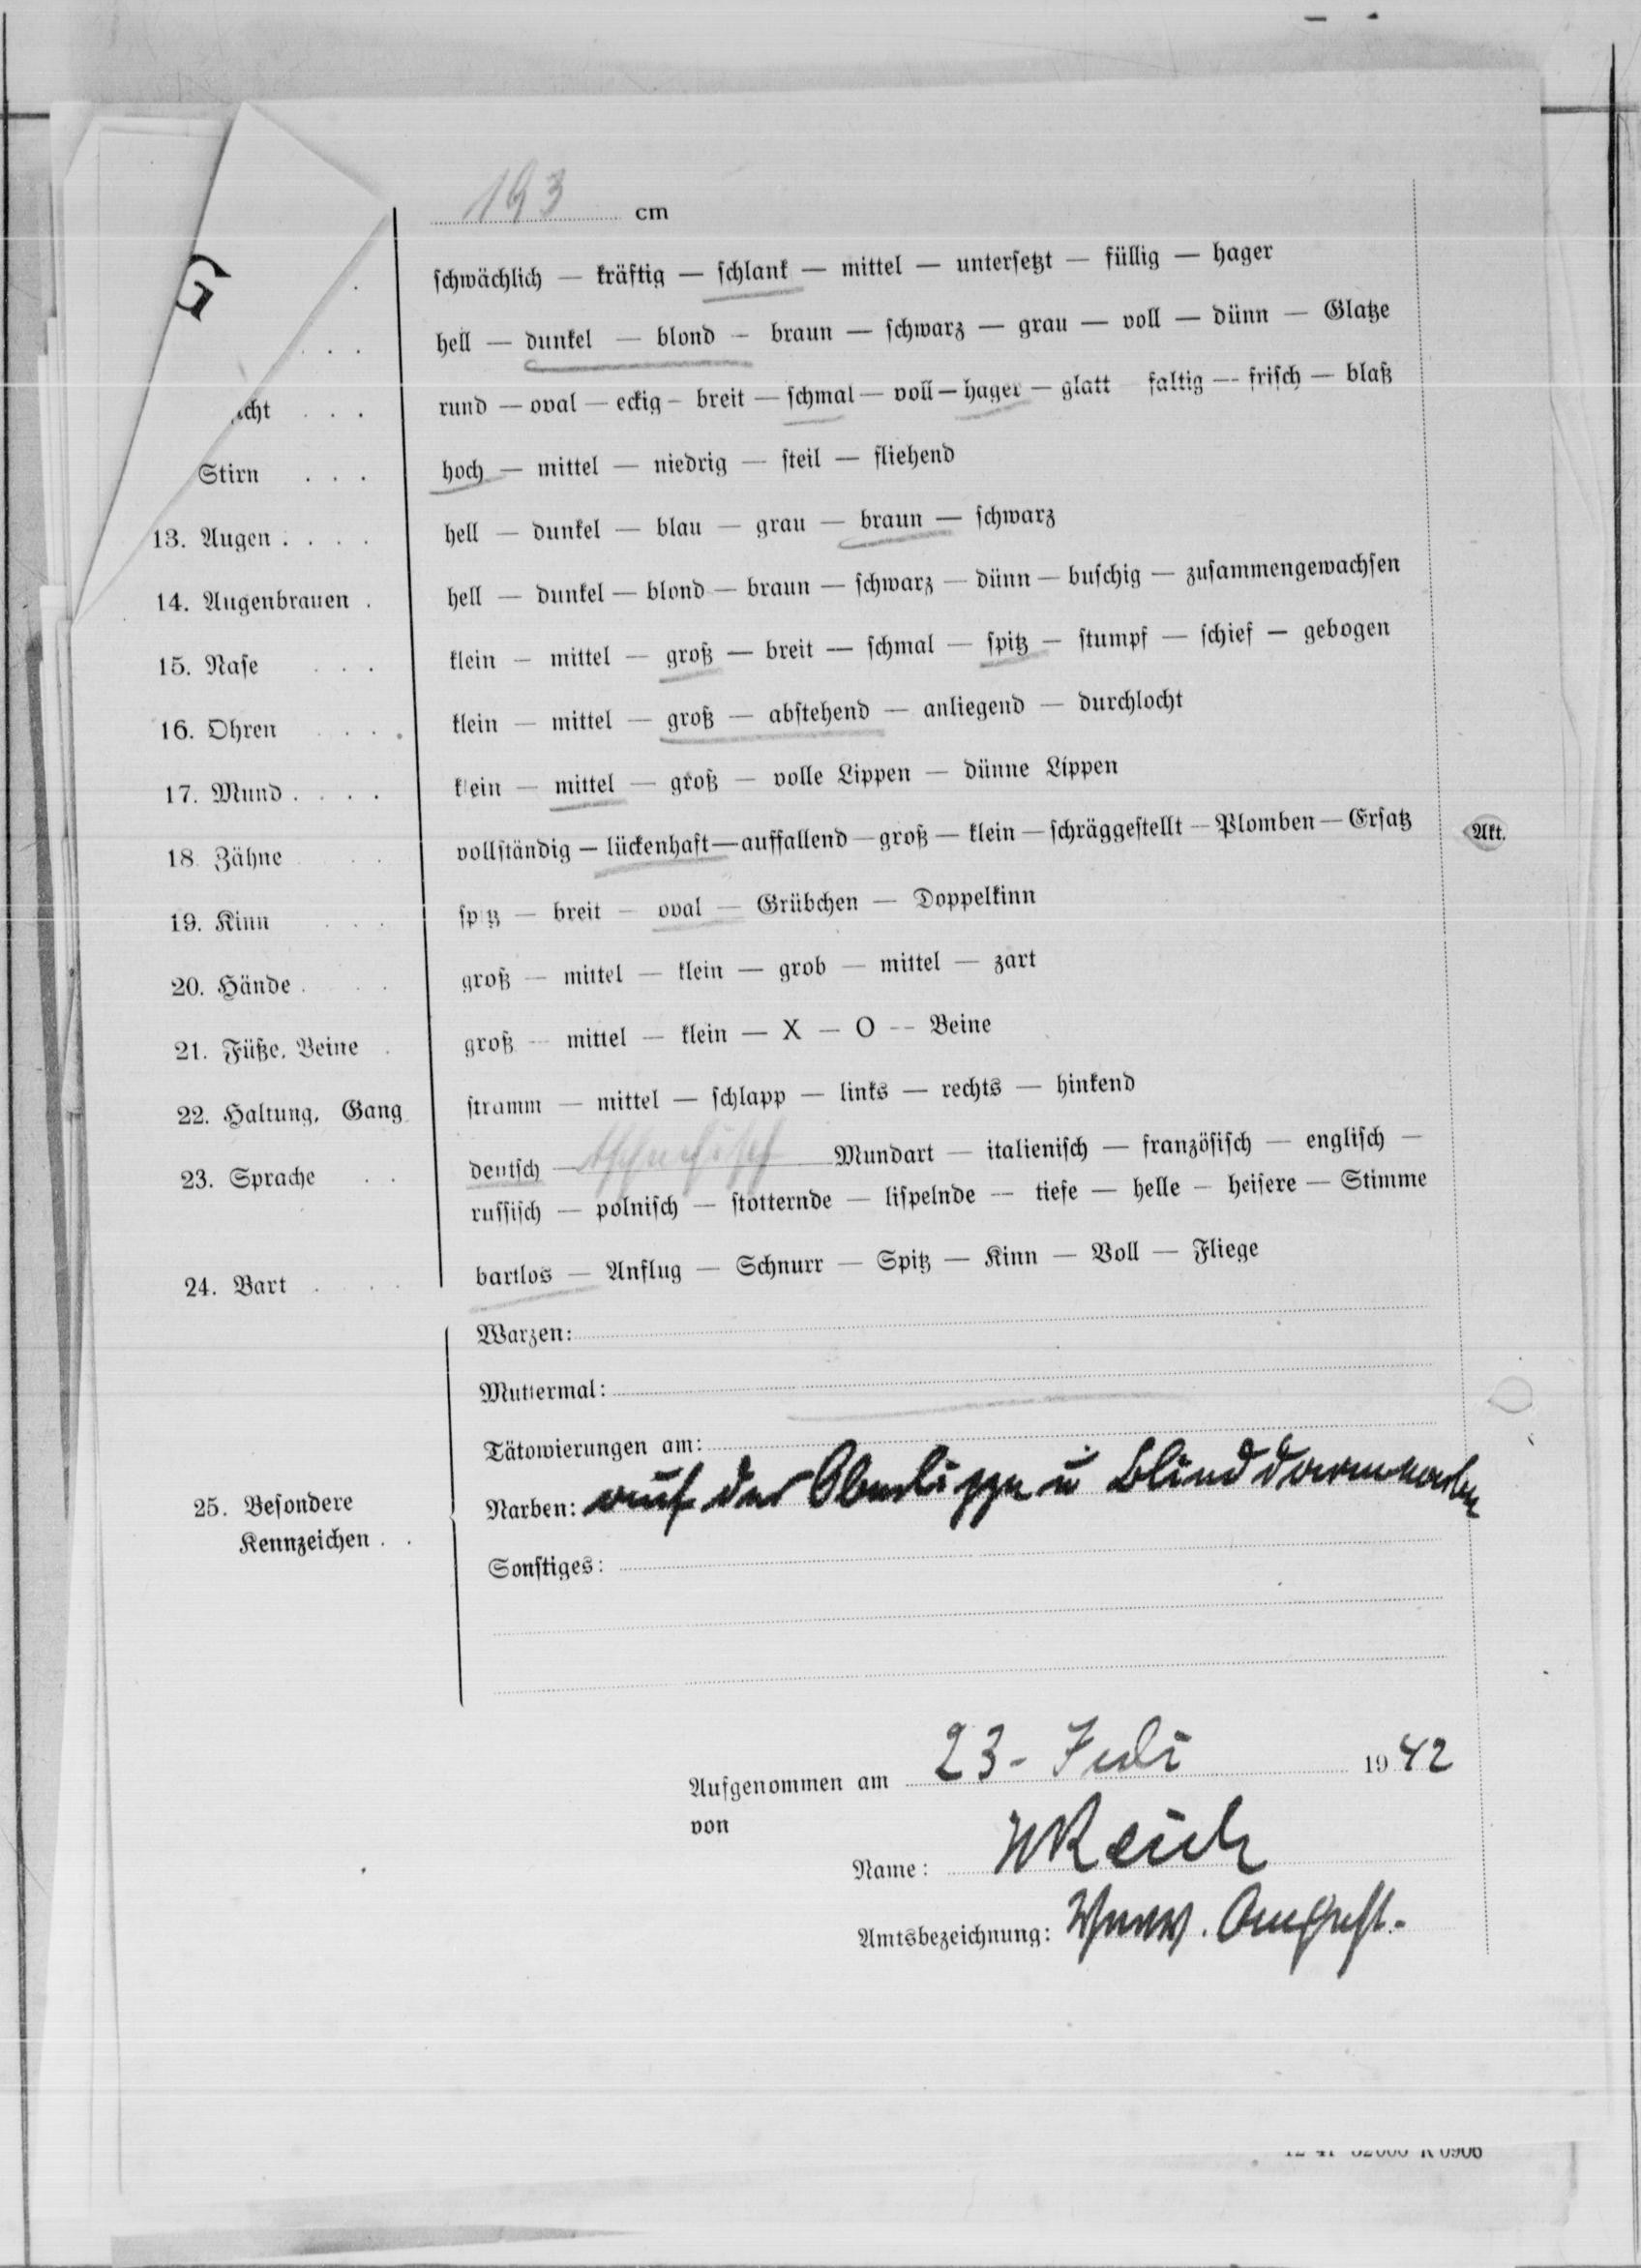 193 cm
G
schwächlich — kräftig — schlank — mittel — untersetzt — füllig — hager
hell — dunkel — blond — braun — schwarz — grau — voll — dünn — Glatze
icht . . . rund — oval — eckig — breit — schmal — voll — hager — glatt faltig — frisch — blaß
Stirn . . . hoch — mittel — niedrig — steil — fliehend
13. Augen . . . . hell — dunkel — blau — grau — braun — schwarz
14. Augenbrauen . hell — dunkel — blond — braun — schwarz — dünn — buschig — zusammengewachsen
15. Nase . . . klein — mittel — groß — breit — schmal — spitz — stumpf — schief — gebogen
16. Ohren . . . . klein — mittel — groß — abstehend — anliegend — durchlocht
17. Mund . . . . klein — mittel — groß — volle Lippen — dünne Lippen
18. Zähne . . vollständig — lückenhaft — auffallend — groß — klein — schräggestellt — Plomben — Ersatz Akt.
19. Kinn . . . spitz — breit — oval — Grübchen — Doppelkinn
20. Hände . . . groß — mittel — klein — grob — mittel — zart
21. Füße, Beine . groß — mittel — klein — X — O -- Beine
22. Haltung, Gang stramm — mittel — schlapp — links — rechts — hinkend
23. Sprache . . deutsch — tschechisch Mundart — italienisch — französisch — englisch —
russisch — polnisch — stotternde — lispelnde — tiefe — helle — heisere — Stimme
24. Bart . . . bartlos — Anflug — Schnurr — Spitz — Kinn — Voll — Fliege
Warzen:
Muttermal:
Tätowierungen am:
25. Besondere Kennzeichen . .
Narben: auf der Oberlippe u Blinddarmnarbe
Sonstiges:
Aufgenommen am 23. Juli 1942
von
Name: Reich
Amtsbezeichnung: Verw. Angest.
R 0906